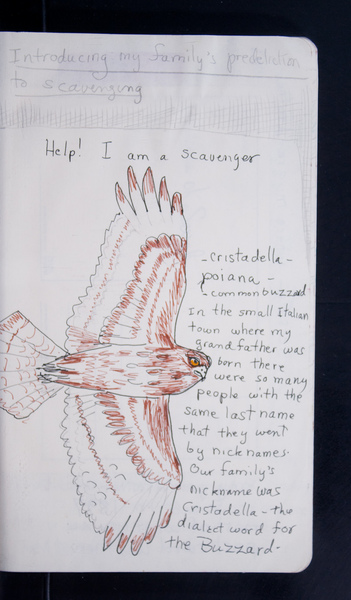 Introducing my family's predeliction
to scavenging
Help! I am a scavenger
-cristadella-
poiana-
-common buzzard
In the small Italian
town where my
grandfather was
born there
were so many
people with the
same last name
that they went
by nicknames.
Our family's
nickname was
Cristadella-the
dialect word for
the Buzzard.